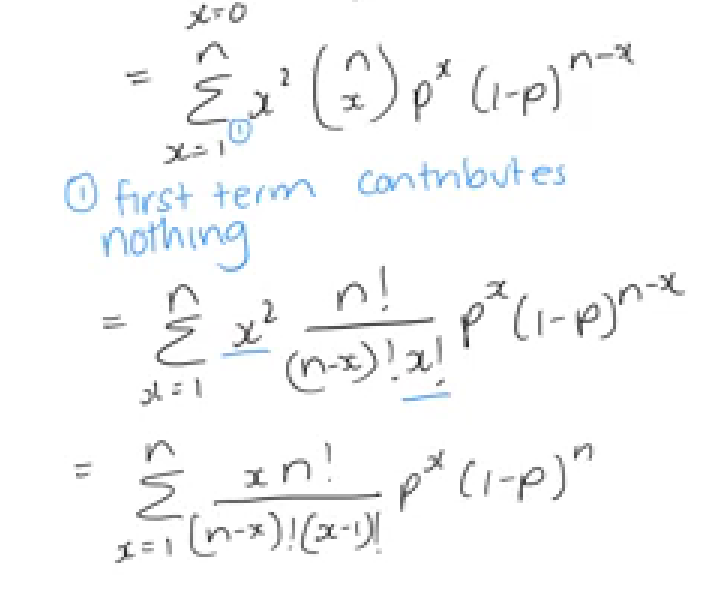 x=0
= \sum_{x=1}^{n} ① x^2 \binom{n}{x} p^x (1-p)^{n-x}
① first term contributes
nothing
= \sum_{x=1}^{n} x^2 \frac{n!}{(n-x)!x!} p^x (1-p)^{n-x}
= \sum_{x=1}^{n} \frac{x n!}{(n-x)!(x-1)!} p^x (1-p)^n